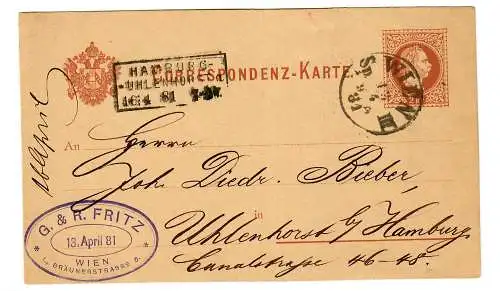 HAMBURG-
UHLENHORST
16/4 81 7-8N.
CORRESPONDENZ-KARTE.
WIEN
2 KR
16 April
An
Herrn
Joh. Diedr. Bieber,
in
Uhlenhorst b/ Hamburg
Canalstraße 46-48.
G. & R. FRITZ
13. April 81
WIEN
I., BRÄUNERSTRASSE 5.